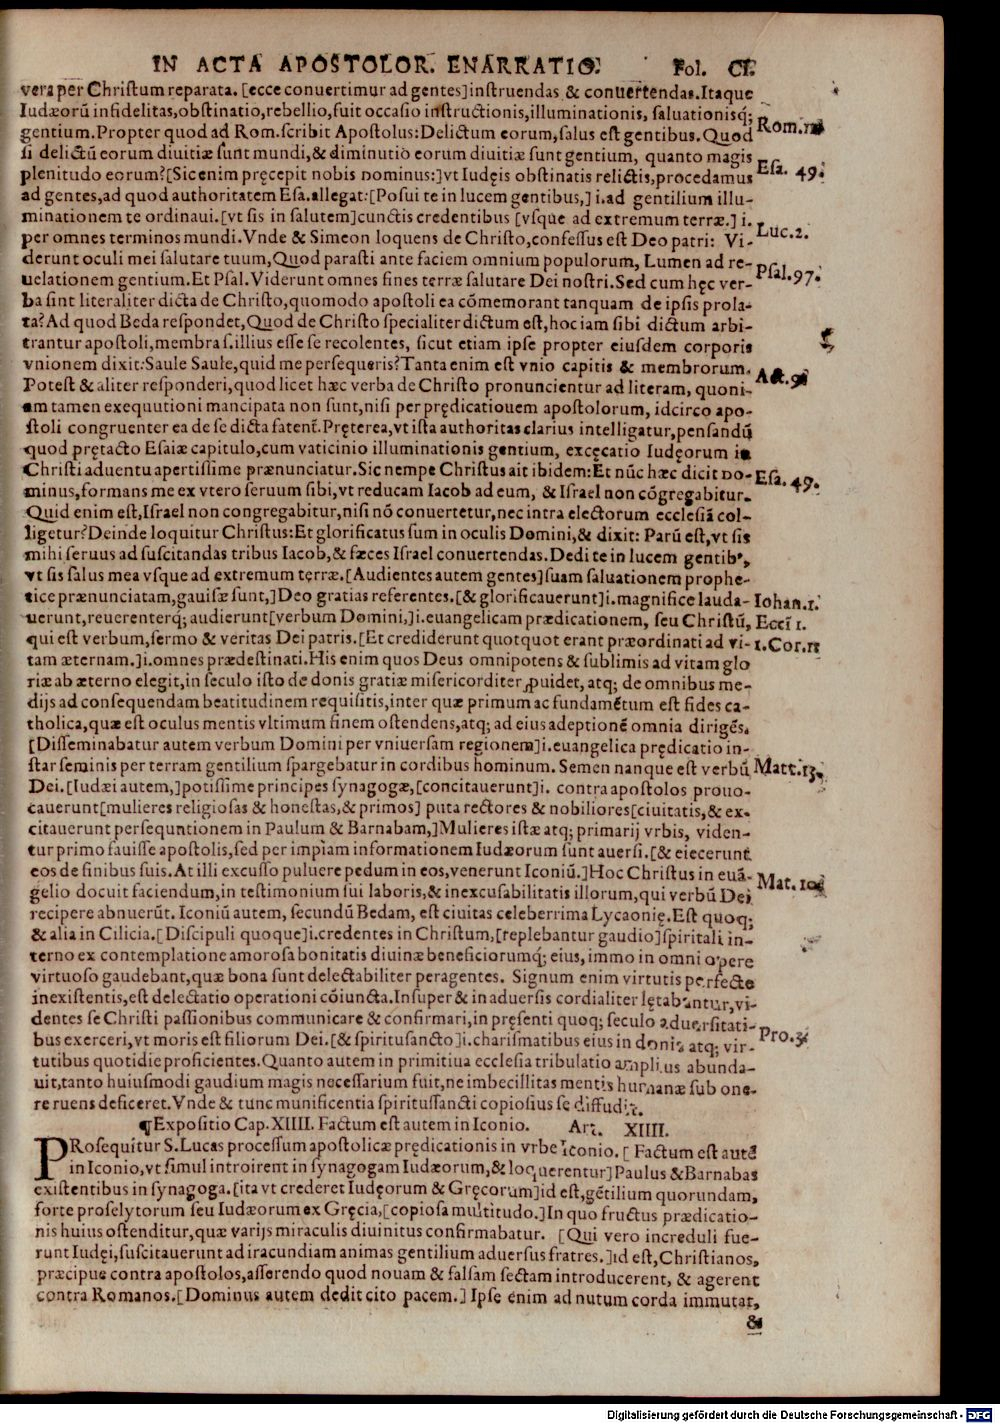 IN ACTA APOSTOLOR. ENARRATIO. Fol. CI.
vera per Christum reparata. [ecce conuertimur ad gentes] instruendas & conuertendas. Itaque
Iudæorū infidelitas, obstinatio, rebellio, fuit occasio instructionis, illuminationis, saluationisq;
gentium. Propter quod ad Rom. scribit Apostolus: Delictum eorum, salus est gentibus. Quod
si delictū eorum diuitiæ sunt mundi, & diminutio eorum diuitiæ sunt gentium, quanto magis
Rom.11
plenitudo eorum? [Sic enim pręcepit nobis dominus:] vt Iudęis obstinatis relictis, procedamus
Esa. 49.
ad gentes, ad quod authoritatem Esa. allegat: [Posui te in lucem gentibus,] i. ad gentilium illu-
minationem te ordinaui. [vt sis in salutem] cunctis credentibus [vsque ad extremum terræ.] i.
per omnes terminos mundi. Vnde & Simeon loquens de Christo, confessus est Deo patri: Vi-
Luc.2.
derunt oculi mei salutare tuum, Quod parasti ante faciem omnium populorum, Lumen ad re-
uelationem gentium. Et Psal. Viderunt omnes fines terræ salutare Dei nostri. Sed cum hęc ver-
Psal.97.
ba sint literaliter dicta de Christo, quomodo apostoli ea cōmemorant tanquam de ipsis prola-
ta? Ad quod Beda respondet, Quod de Christo specialiter dictum est, hoc iam sibi dictum arbi-
trantur apostoli, membra s. illius esse se recolentes, sicut etiam ipse propter eiusdem corporis
vnionem dixit: Saule Saule, quid me persequeris? Tanta enim est vnio capitis & membrorum.
Act.9.
Potest & aliter responderi, quod licet hæc verba de Christo pronuncientur ad literam, quoni-
am tamen exequutioni mancipata non sunt, nisi per prędicatiouem apostolorum, idcirco apo-
stoli congruenter ea de se dicta faten̄t. Pręterea, vt ista authoritas clarius intelligatur, pensandū
quod prętacto Esaiæ capitulo, cum vaticinio illuminationis gentium, excęcatio Iudęorum in
Christi aduentu apertissime prænunciatur. Sic nempe Christus ait ibidem: Et nūc hæc dicit do-
Esa. 49.
minus, formans me ex vtero seruum sibi, vt reducam Iacob ad eum, & Israel non cōgregabitur.
Quid enim est, Israel non congregabitur, nisi nō conuertetur, nec intra electorum ecclesiā col-
ligetur? Deinde loquitur Christus: Et glorificatus sum in oculis Domini, & dixit: Parū est, vt sis
mihi seruus ad suscitandas tribus Iacob, & fæces Israel conuertendas. Dedi te in lucem gentib⁹,
vt sis salus mea vsque ad extremum terræ. [Audientes autem gentes] suam saluationem prophe-
tice prænunciatam, gauisæ sunt,] Deo gratias referentes. [& glorificauerunt] i. magnifice lauda-
Iohan.1.
uerunt, reuerenterq; audierunt [verbum Domini,] i. euangelicam prædicationem, seu Christū,
Eccī 1.
qui est verbum, sermo & veritas Dei patris. [Et crediderunt quotquot erant præordinati ad vi-
1.Cor.11
tam æternam.] i. omnes prædestinati. His enim quos Deus omnipotens & sublimis ad vitam glo
riæ ab æterno elegit, in seculo isto de donis gratiæ misericorditer ꝓuidet, atq; de omnibus me-
dijs ad consequendam beatitudinem requisitis, inter quæ primum ac fundamētum est fides ca-
tholica, quæ est oculus mentis vltimum finem ostendens, atq; ad eius adeptionē omnia dirigēs.
[Disseminabatur autem verbum Domini per vniuersam regionem] i. euangelica prędicatio in-
star seminis per terram gentilium spargebatur in cordibus hominum. Semen nanque est verbū
Matt.13.
Dei. [Iudæi autem,] potissime principes synagogæ, [concitauerunt] i. contra apostolos prouo-
cauerunt [mulieres religiosas & honestas, & primos] puta rectores & nobiliores [ciuitatis, & ex-
citauerunt persequutionem in Paulum & Barnabam,] Mulieres istæ atq; primarij vrbis, viden-
tur primo fauisse apostolis, sed per impiam informationem Iudæorum sunt auersi. [& eiecerunt
eos de finibus suis. At illi excusso puluere pedum in eos, venerunt Iconiū.] Hoc Christus in euā-
Mat. 10.
gelio docuit faciendum, in testimonium sui laboris, & inexcusabilitatis illorum, qui verbū Dei
recipere abnuerūt. Iconiū autem, secundū Bedam, est ciuitas celeberrima Lycaonię. Est quoq;
& alia in Cilicia. [Discipuli quoque] i. credentes in Christum, [replebantur gaudio] spiritali in-
terno ex contemplatione amorosa bonitatis diuinæ beneficiorumq; eius, immo in omni opere
virtuoso gaudebant, quæ bona sunt delectabiliter peragentes. Signum enim virtutis perfecte
inexistentis, est delectatio operationi cōiuncta. Insuper & in aduersis cordialiter lętabantur, vi-
dentes se Christi passionibus communicare & confirmari, in pręsenti quoq; seculo aduersitati-
bus exerceri, vt moris est filiorum Dei. [& spiritusancto] i. charismatibus eius in donis atq; vir-
Pro.3.
tutibus quotidie proficientes. Quanto autem in primitiua ecclesia tribulatio amplius abunda-
uit, tanto huiusmodi gaudium magis necessarium fuit, ne imbecillitas mentis humanæ sub one-
re ruens deficeret. Vnde & tunc munificentia spiritussancti copiosius se diffudit.
¶Expositio Cap. XIIII. Factum est autem in Iconio. Art. XIIII.
PRosequitur S. Lucas processum apostolicæ prędicationis in vrbe Iconio. [Factum est autē
in Iconio, vt simul introirent in synagogam Iudæorum, & loquerentur] Paulus & Barnabas
existentibus in synagoga. [ita vt crederet Iudęorum & Gręcorum] id est, gētilium quorundam,
forte proselytorum seu Iudæorum ex Gręcia, [copiosa multitudo.] In quo fructus prædicatio-
nis huius ostenditur, quæ varijs miraculis diuinitus confirmabatur. [Qui vero increduli fue-
runt Iudęi, suscitauerunt ad iracundiam animas gentilium aduersus fratres.] id est, Christianos,
præcipue contra apostolos, asserendo quod nouam & falsam sectam introducerent, & agerent
contra Romanos. [Dominus autem dedit cito pacem.] Ipse enim ad nutum corda immutat,
&
Digitalisierung gefördert durch die Deutsche Forschungsgemeinschaft - DFG